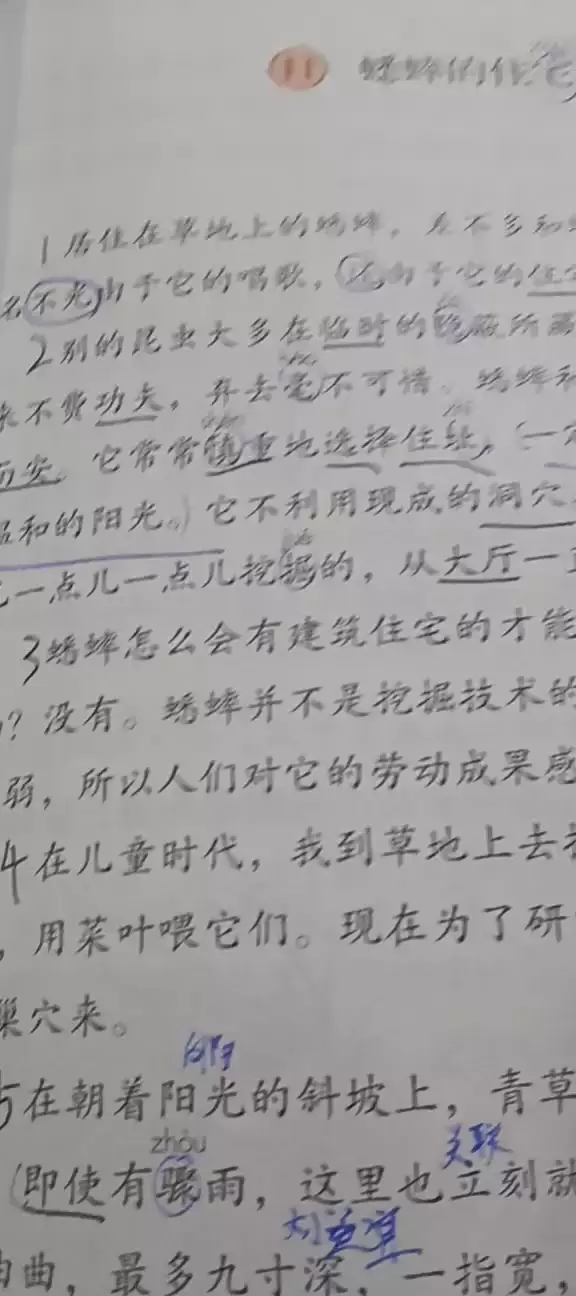 11 蟋蟀的住宅
1居住在草地上的蟋蟀，差不多和
名不光由于它的唱歌，还由于它的住宅
2别的昆虫大多在临时的隐蔽所
来不费功夫，弃去毫不可惜。蟋蟀和
而安。它常常慎重地选择住址，一定
温和的阳光。它不利用现成的洞穴
一点儿一点儿挖掘的，从大厅一直
3蟋蟀怎么会有建筑住宅的才能
？没有。蟋蟀并不是挖掘技术的
弱，所以人们对它的劳动成果感
4在儿童时代，我到草地上去
，用菜叶喂它们。现在为了研
巢穴来。
5在朝着阳光的斜坡上，青草
zhòu 关联
即使有骤雨，这里也立刻就
曲，最多九寸深，一指宽，